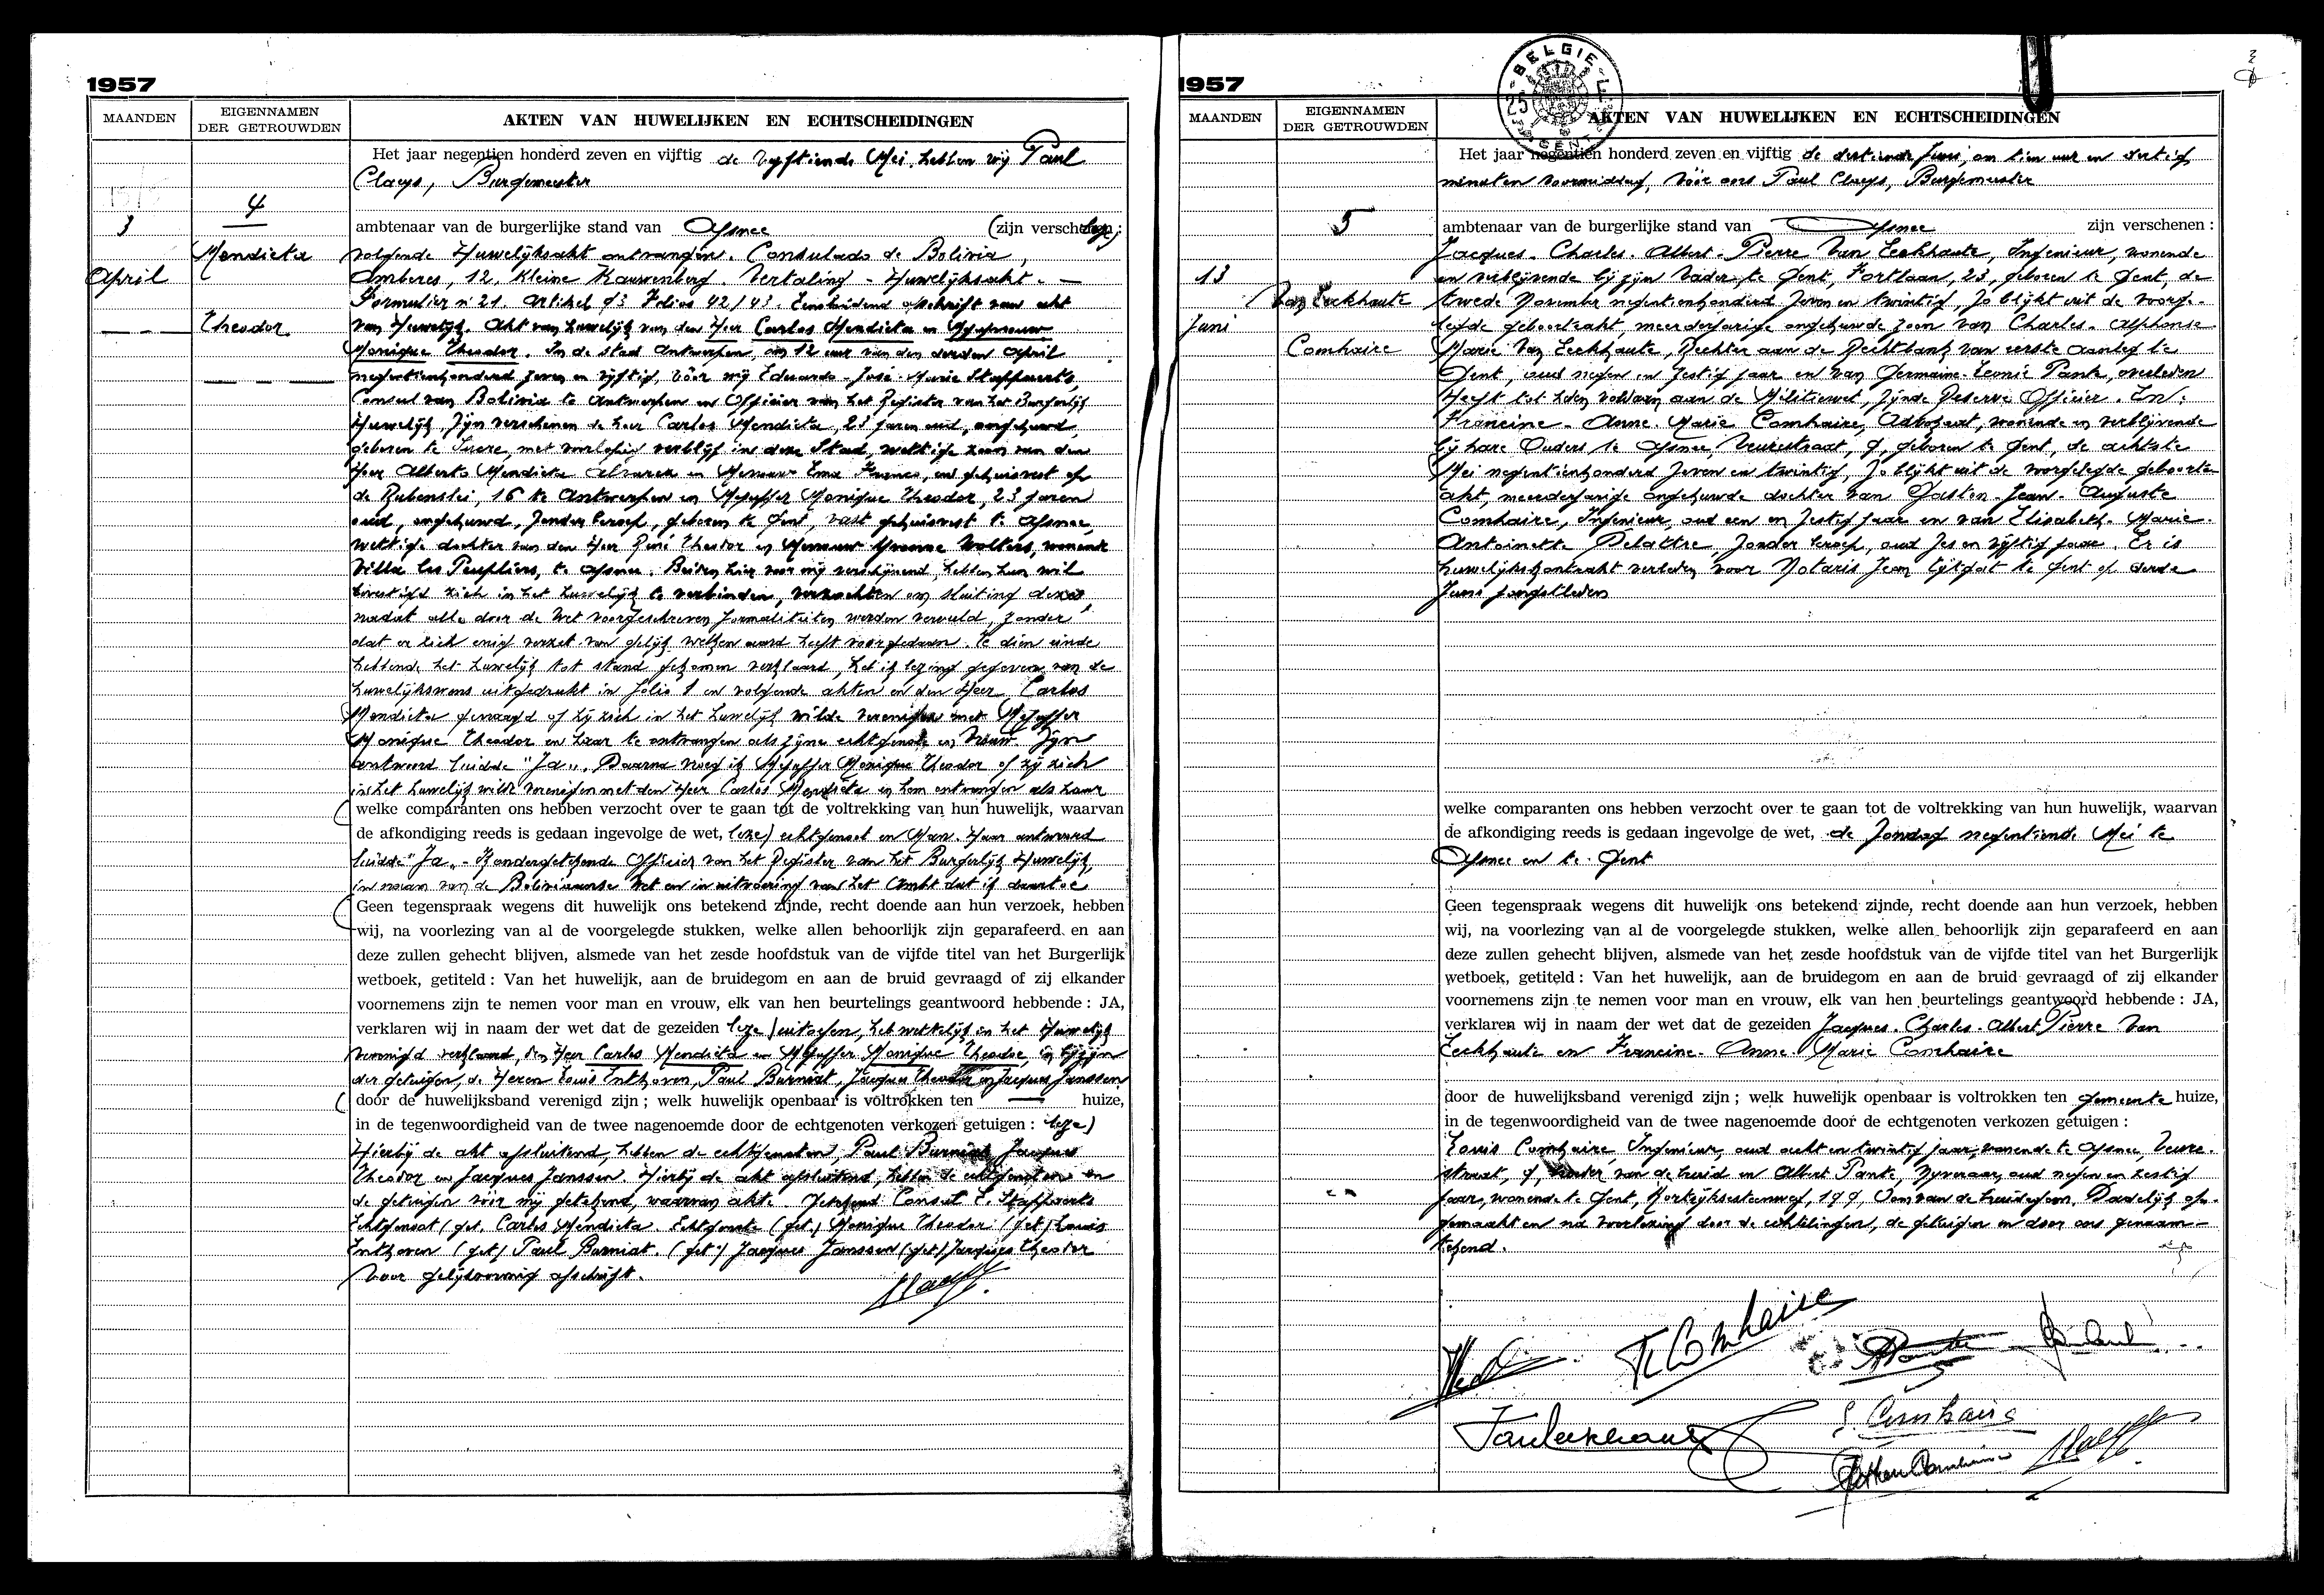 1957
MAANDEN
EIGENNAMEN
DER GETROUWDEN
AKTEN VAN HUWELIJKEN EN ECHTSCHEIDINGEN
Het jaar negentien honderd zeven en vijftig de vijftiende Mei, hebben wij Paul
Claeys, Burgemeester
4
3
ambtenaar van de burgerlijke stand van Afsnee (zijn verschenen: leze)
Mendieta
volgende Huwelijksakt ontvangen. Consulado de Bolivia,
April
Amberes, 12, Kleine Kauwenberg. Vertaling - Huwelijksakt. —
Formulier nr 21. Artikel 93 Folios 42/43. Eensluidend afschrift van akt
Theodor
van Huwelijk. Akt van huwelijk van den Heer Carlos Mendieta en Mejuffrouw
Monique Theodor. In de stad Antwerpen, om 12 uur van den derden April
negentienhonderd zeven en vijftig, vóór mij Eduardo-José-Marie Stappaerts,
Consul van Bolivia te Antwerpen en Officier van het Register van het Burgerlijk
Huwelijk, zijn verschenen de heer Carlos Mendieta, 23 jaren oud, ongehuwd,
geboren te Sucre, met voorlopig verblijf in deze Stad, wettige zoon van den
Heer Alberto Mendieta Alvarez en Mevrouw Ema Franco, en gehuisvest op
de Rubenslei, 16 te Antwerpen en Mejuffer Monique Theodor, 23 jaren
oud, ongehuwd, zonder beroep, geboren te Gent, vast gehuisvest te Afsnee,
wettige dochter van den Heer René Theodor en Mevrouw Yvonne Wolters, wonende
Villa les Peupliers, te Afsnee. Beiden hier voor mij verschijnend, hebben hun wil
bevestigd zich in het huwelijk te verbinden, verzochten om sluiting dezes,
nadat alle door de Wet voorgeschreven formaliteiten werden vervuld, zonder
dat er zich enig verzet van gelijk welken aard heeft voorgedaan. Te dien einde
hebbende het huwelijk tot stand gekomen verklaard, heb ik lezing gegeven van de
huwelijkswens uitgedrukt in folio 1 en volgende akten en den Heer Carlos
Mendieta gevraagd of hij zich in het huwelijk wilde verenigen met Mejuffer
Monique Theodor en haar te ontvangen als zijne echtgenote en Vrouw. Zijn
antwoord luidde "Ja". Daarna vroeg ik Mejuffer Monique Theodor of zij zich
in het huwelijk wilde verenigen met den Heer Carlos Mendieta en hem ontvangen als haar
(welke comparanten ons hebben verzocht over te gaan tot de voltrekking van hun huwelijk, waarvan
de afkondiging reeds is gedaan ingevolge de wet, leze) echtgenoot en Man. Haar antwoord
luidde "Ja". - Ik ondergetekende Officier van het Register van het Burgerlijk Huwelijk,
in naam van de Boliviaanse Wet en in uitvoering van het Ambt dat ik daartoe
(Geen tegenspraak wegens dit huwelijk ons betekend zijnde, recht doende aan hun verzoek, hebben
wij, na voorlezing van al de voorgelegde stukken, welke allen behoorlijk zijn geparafeerd en aan
deze zullen gehecht blijven, alsmede van het zesde hoofdstuk van de vijfde titel van het Burgerlijk
wetboek, getiteld: Van het huwelijk, aan de bruidegom en aan de bruid gevraagd of zij elkander
voornemens zijn te nemen voor man en vrouw, elk van hen beurtelings geantwoord hebbende: JA,
verklaren wij in naam der wet dat de gezeiden leze) uitoefen, heb wettelijk in het Huwelijk
verenigd verklaard, den Heer Carlos Mendieta en Mejuffer Monique Theodor, in bijzijn
der getuigen, de Heren Louis Enthoven, Paul Burniat, Jacques Theodor en Jacques Janssen
(door de huwelijksband verenigd zijn; welk huwelijk openbaar is voltrokken ten — huize,
in de tegenwoordigheid van de twee nagenoemde door de echtgenoten verkozen getuigen: leze)
Hierbij de akt afsluitend, hebben de echtgenoten, Paul Burniat, Jacques
Theodor en Jacques Janssen. Hierbij de akt afsluitend, hebben de echtgenoten en
de getuigen vóór mij getekend, waarvan akte. Getekend Consul E. Stappaerts
Echtgenoot (get. Carlos Mendieta. Echtgenote (get.) Monique Theodor. (get.) Louis
Enthoven (get) Paul Burniat. (get.) Jacques Janssen (get) Jacques Theodor
Voor gelijkvormig afschrift.
1957
BELGIE
25
GENT
MAANDEN
EIGENNAMEN
DER GETROUWDEN
AKTEN VAN HUWELIJKEN EN ECHTSCHEIDINGEN
Het jaar negentien honderd zeven en vijftig de dertiende Juni, om tien uur en dertig
minuten voormiddag, vóór ons Paul Claeys, Burgemeester
5
ambtenaar van de burgerlijke stand van Afsnee zijn verschenen:
Jacques-Charles-Albert-Pierre Van Eeckhaute, Ingenieur, wonende
13
en verblijvende bij zijn Vader te Gent, Fortlaan, 23, geboren te Gent, de
Van Eeckhaute
twede November negentienhonderd zeven en twintig, zo blijkt uit de voorge-
Juni
legde geboorteakt, meerderjarige ongehuwde zoon van Charles-Alphonse
Comhaire
Marie Van Eeckhaute, Rechter aan de Rechtbank van eerste aanleg te
Gent, oud negen en zestig jaar en van Germaine-Leonie Pante, overleden
Heeft tot heden voldaan aan de Militiewet, zijnde Reserve Officier. En:
Francine-Anne-Marie Comhaire, Advokaat, wonende en verblijvende
bij hare Ouders te Afsnee, Veurestraat, 9, geboren te Gent, de achtste
Mei negentienhonderd zeven en twintig, zo blijkt uit de voorgelegde geboorte
akt, meerderjarige ongehuwde dochter van Gaston-Jean-Auguste
Comhaire, Ingenieur, oud een en zestig jaar en van Elisabeth-Marie-
Antoinette Delattre, zonder beroep, oud zes en vijftig jaar. Er is
huwelijkskontrakt verleden voor Notaris Jean Ligtfoit te Gent op derde
Juni jongstleden
welke comparanten ons hebben verzocht over te gaan tot de voltrekking van hun huwelijk, waarvan
de afkondiging reeds is gedaan ingevolge de wet, de Zondag negentiende Mei te
Afsnee en te Gent
Geen tegenspraak wegens dit huwelijk ons betekend zijnde, recht doende aan hun verzoek, hebben
wij, na voorlezing van al de voorgelegde stukken, welke allen behoorlijk zijn geparafeerd en aan
deze zullen gehecht blijven, alsmede van het zesde hoofdstuk van de vijfde titel van het Burgerlijk
wetboek, getiteld: Van het huwelijk, aan de bruidegom en aan de bruid gevraagd of zij elkander
voornemens zijn te nemen voor man en vrouw, elk van hen beurtelings geantwoord hebbende: JA,
verklaren wij in naam der wet dat de gezeiden Jacques-Charles-Albert Pierre Van
Eeckhaute en Francine-Anne-Marie Comhaire
door de huwelijksband verenigd zijn; welk huwelijk openbaar is voltrokken ten gemeente huize,
in de tegenwoordigheid van de twee nagenoemde door de echtgenoten verkozen getuigen:
Louis Comhaire, Ingenieur, oud acht en twintig jaar, wonende te Afsnee, Veure-
straat, 9, broeder van de bruid en Albert Pante, Nijveraar, oud negen en zestig
jaar, wonende te Gent, Kortrijksesteenweg, 199, Oom van de bruidegom. Dadelijk op-
gemaakt en na voorlezing door de echtelingen, de getuigen en door ons genaam-
tekend.
F. Comhaire
Vaneeckhaute
L. Comhaire